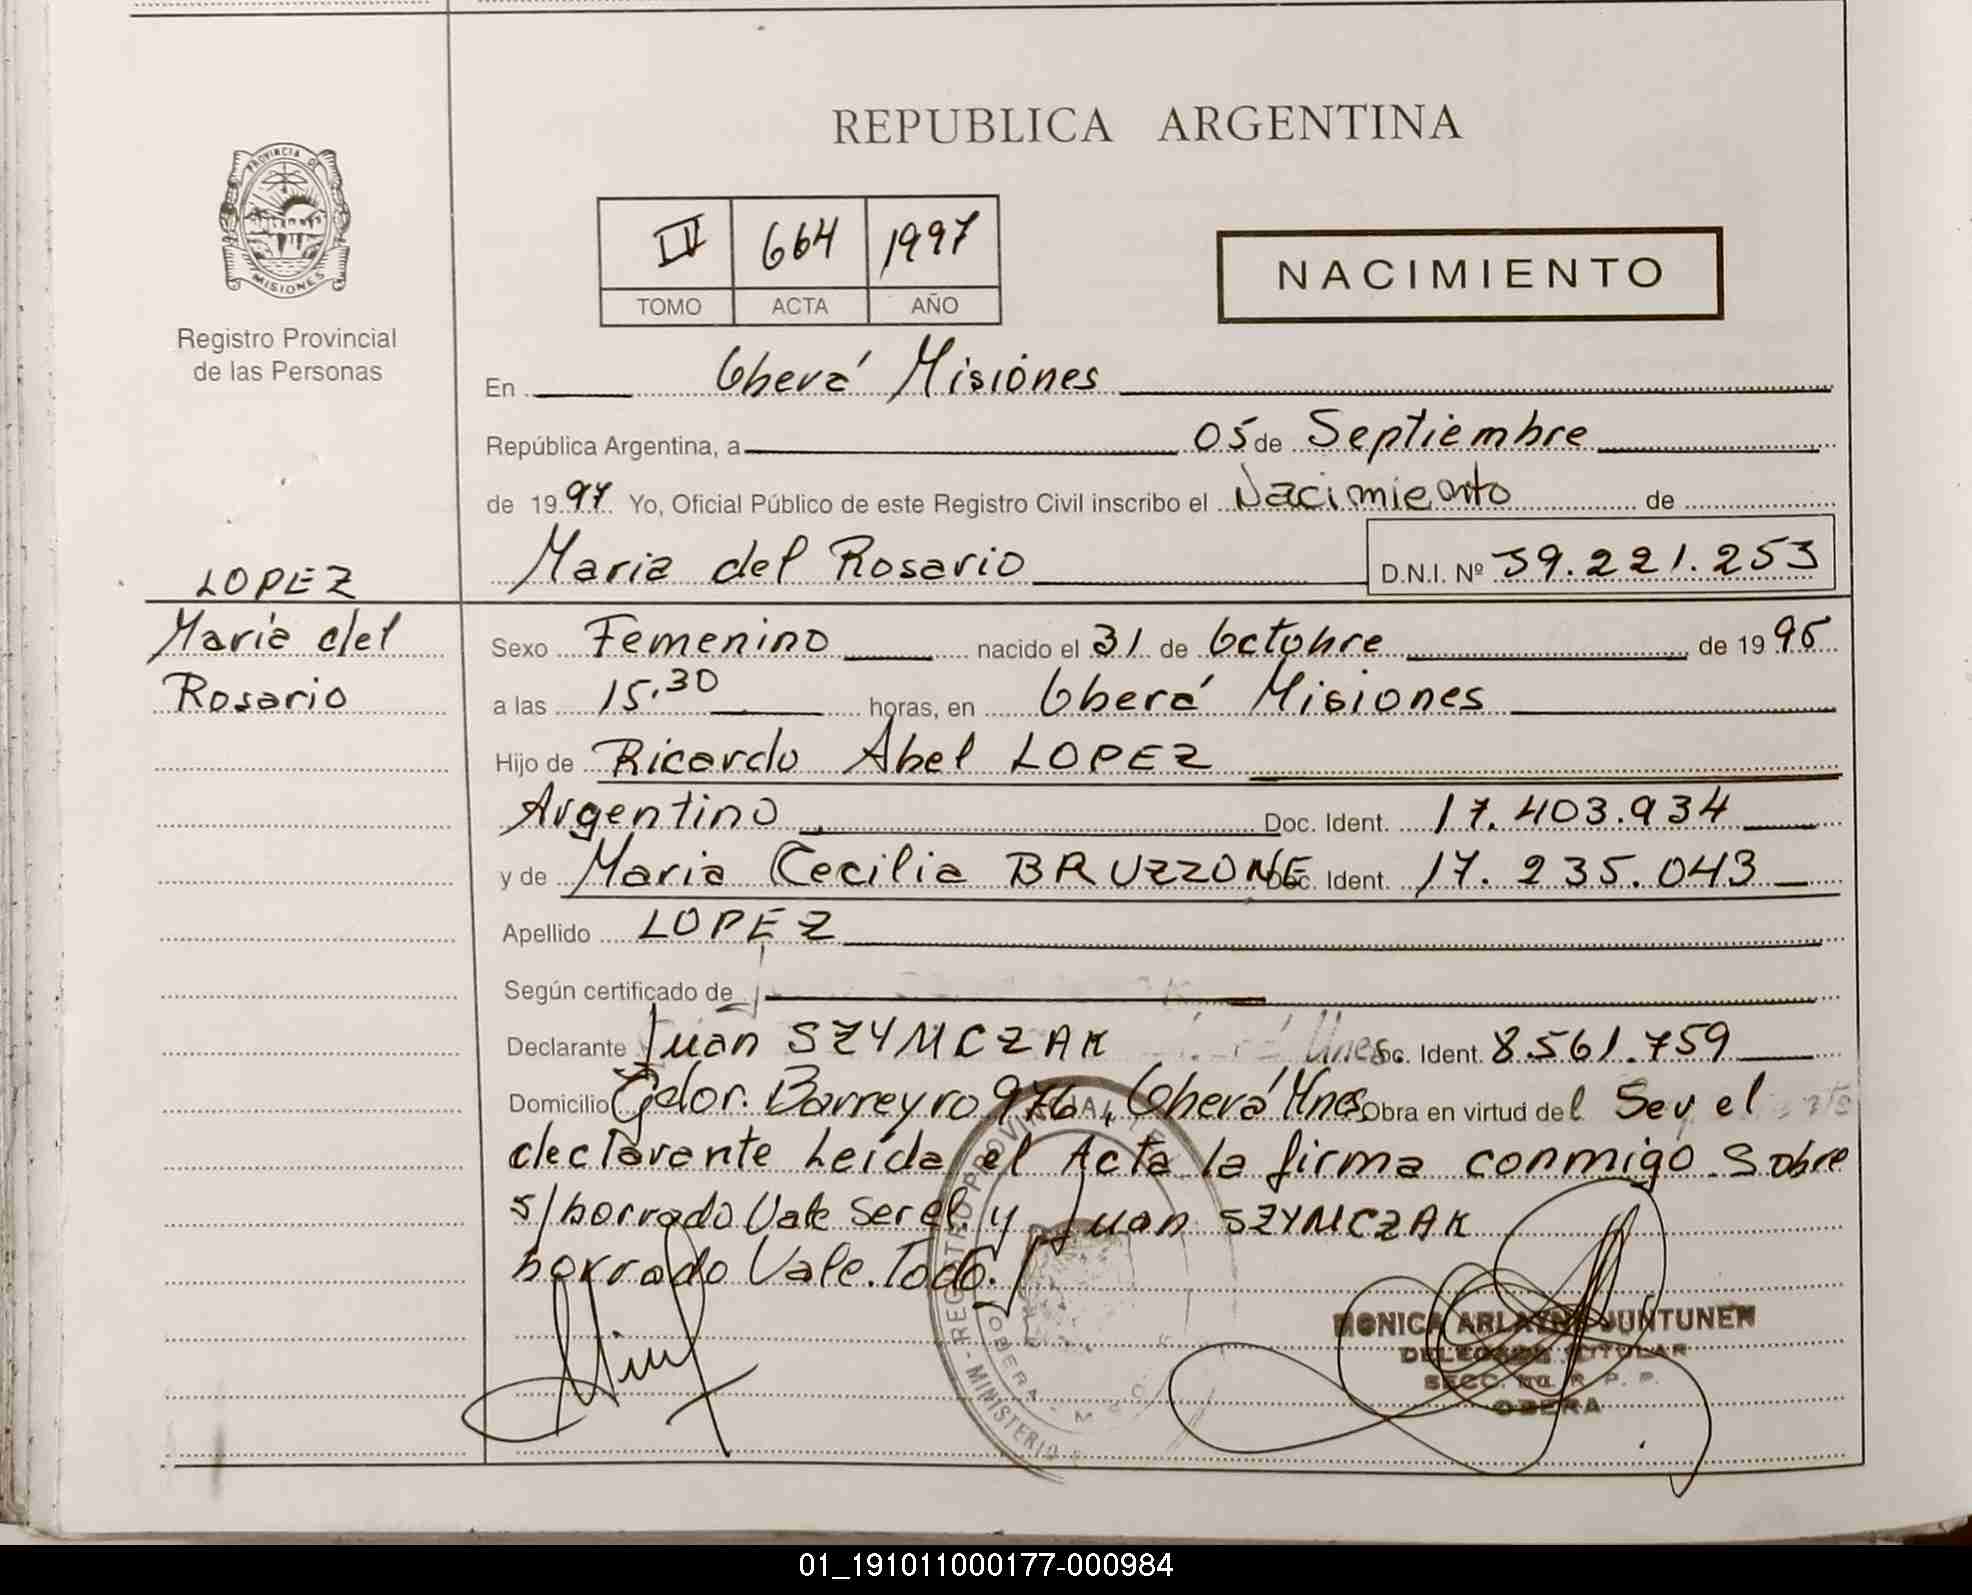 REPUBLICA ARGENTINA
PROVINCIA DE
MISIONES
Registro Provincial
de las Personas
IV 664 1997
TOMO ACTA AÑO
NACIMIENTO
En Oberá Misiónes
República Argentina, a 05 de Septiembre
de 1997 Yo, Oficial Público de este Registro Civil inscribo el Nacimiento de
Maria del Rosario D.N.I. Nº 39.221.253
LOPEZ
Maria del
Rosario
Sexo Femenino nacido el 31 de Octobre de 1995
a las 15.30 horas, en Oberá Misiones
Hijo de Ricardo Abel LOPEZ
Argentino Doc. Ident. 17.403.934
y de Maria Cecilia BRUZZONE Doc. Ident. 17.235.043
Apellido LOPEZ
Según certificado de
Declarante Juan SZYMCZAK Doc. Ident. 8.561.759
Domicilio Gdor. Barreyro 976, Oberá Mnes Obra en virtud del Ser el
declarante Leída el Acta la firma conmigo. Sobre
s/borrado Vale Ser el y Juan SZYMCZAK
borrado Vale. Todo.
MONICA ARLAYNE JUNTUNEN
DELEGADA TITULAR
SECC. 1ra. R. P. P.
OBERA
01_191011000177-000984